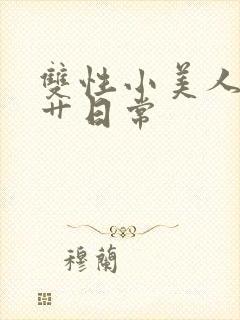 雙性小美人
廿日常
穆蘭